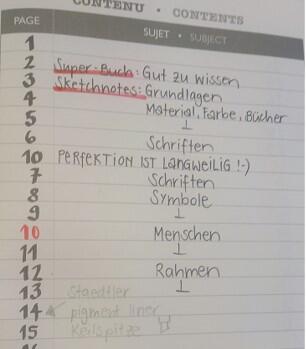 CONTENU • CONTENTS
PAGE SUJET • SUBJECT
1
2 Super-Buch: Gut zu wissen
3 Sketchnotes: Grundlagen
4 Material, Farbe, Bücher
5 ⊥
6 Schriften
10 PERFEKTION IST LANGWEILIG !-)
7 Schriften
8 Symbole
9 ⊥
10 Menschen
11 ⊥
12 Rahmen
13 Staedtler ⊥
14 pigment liner
15 Keilspitze